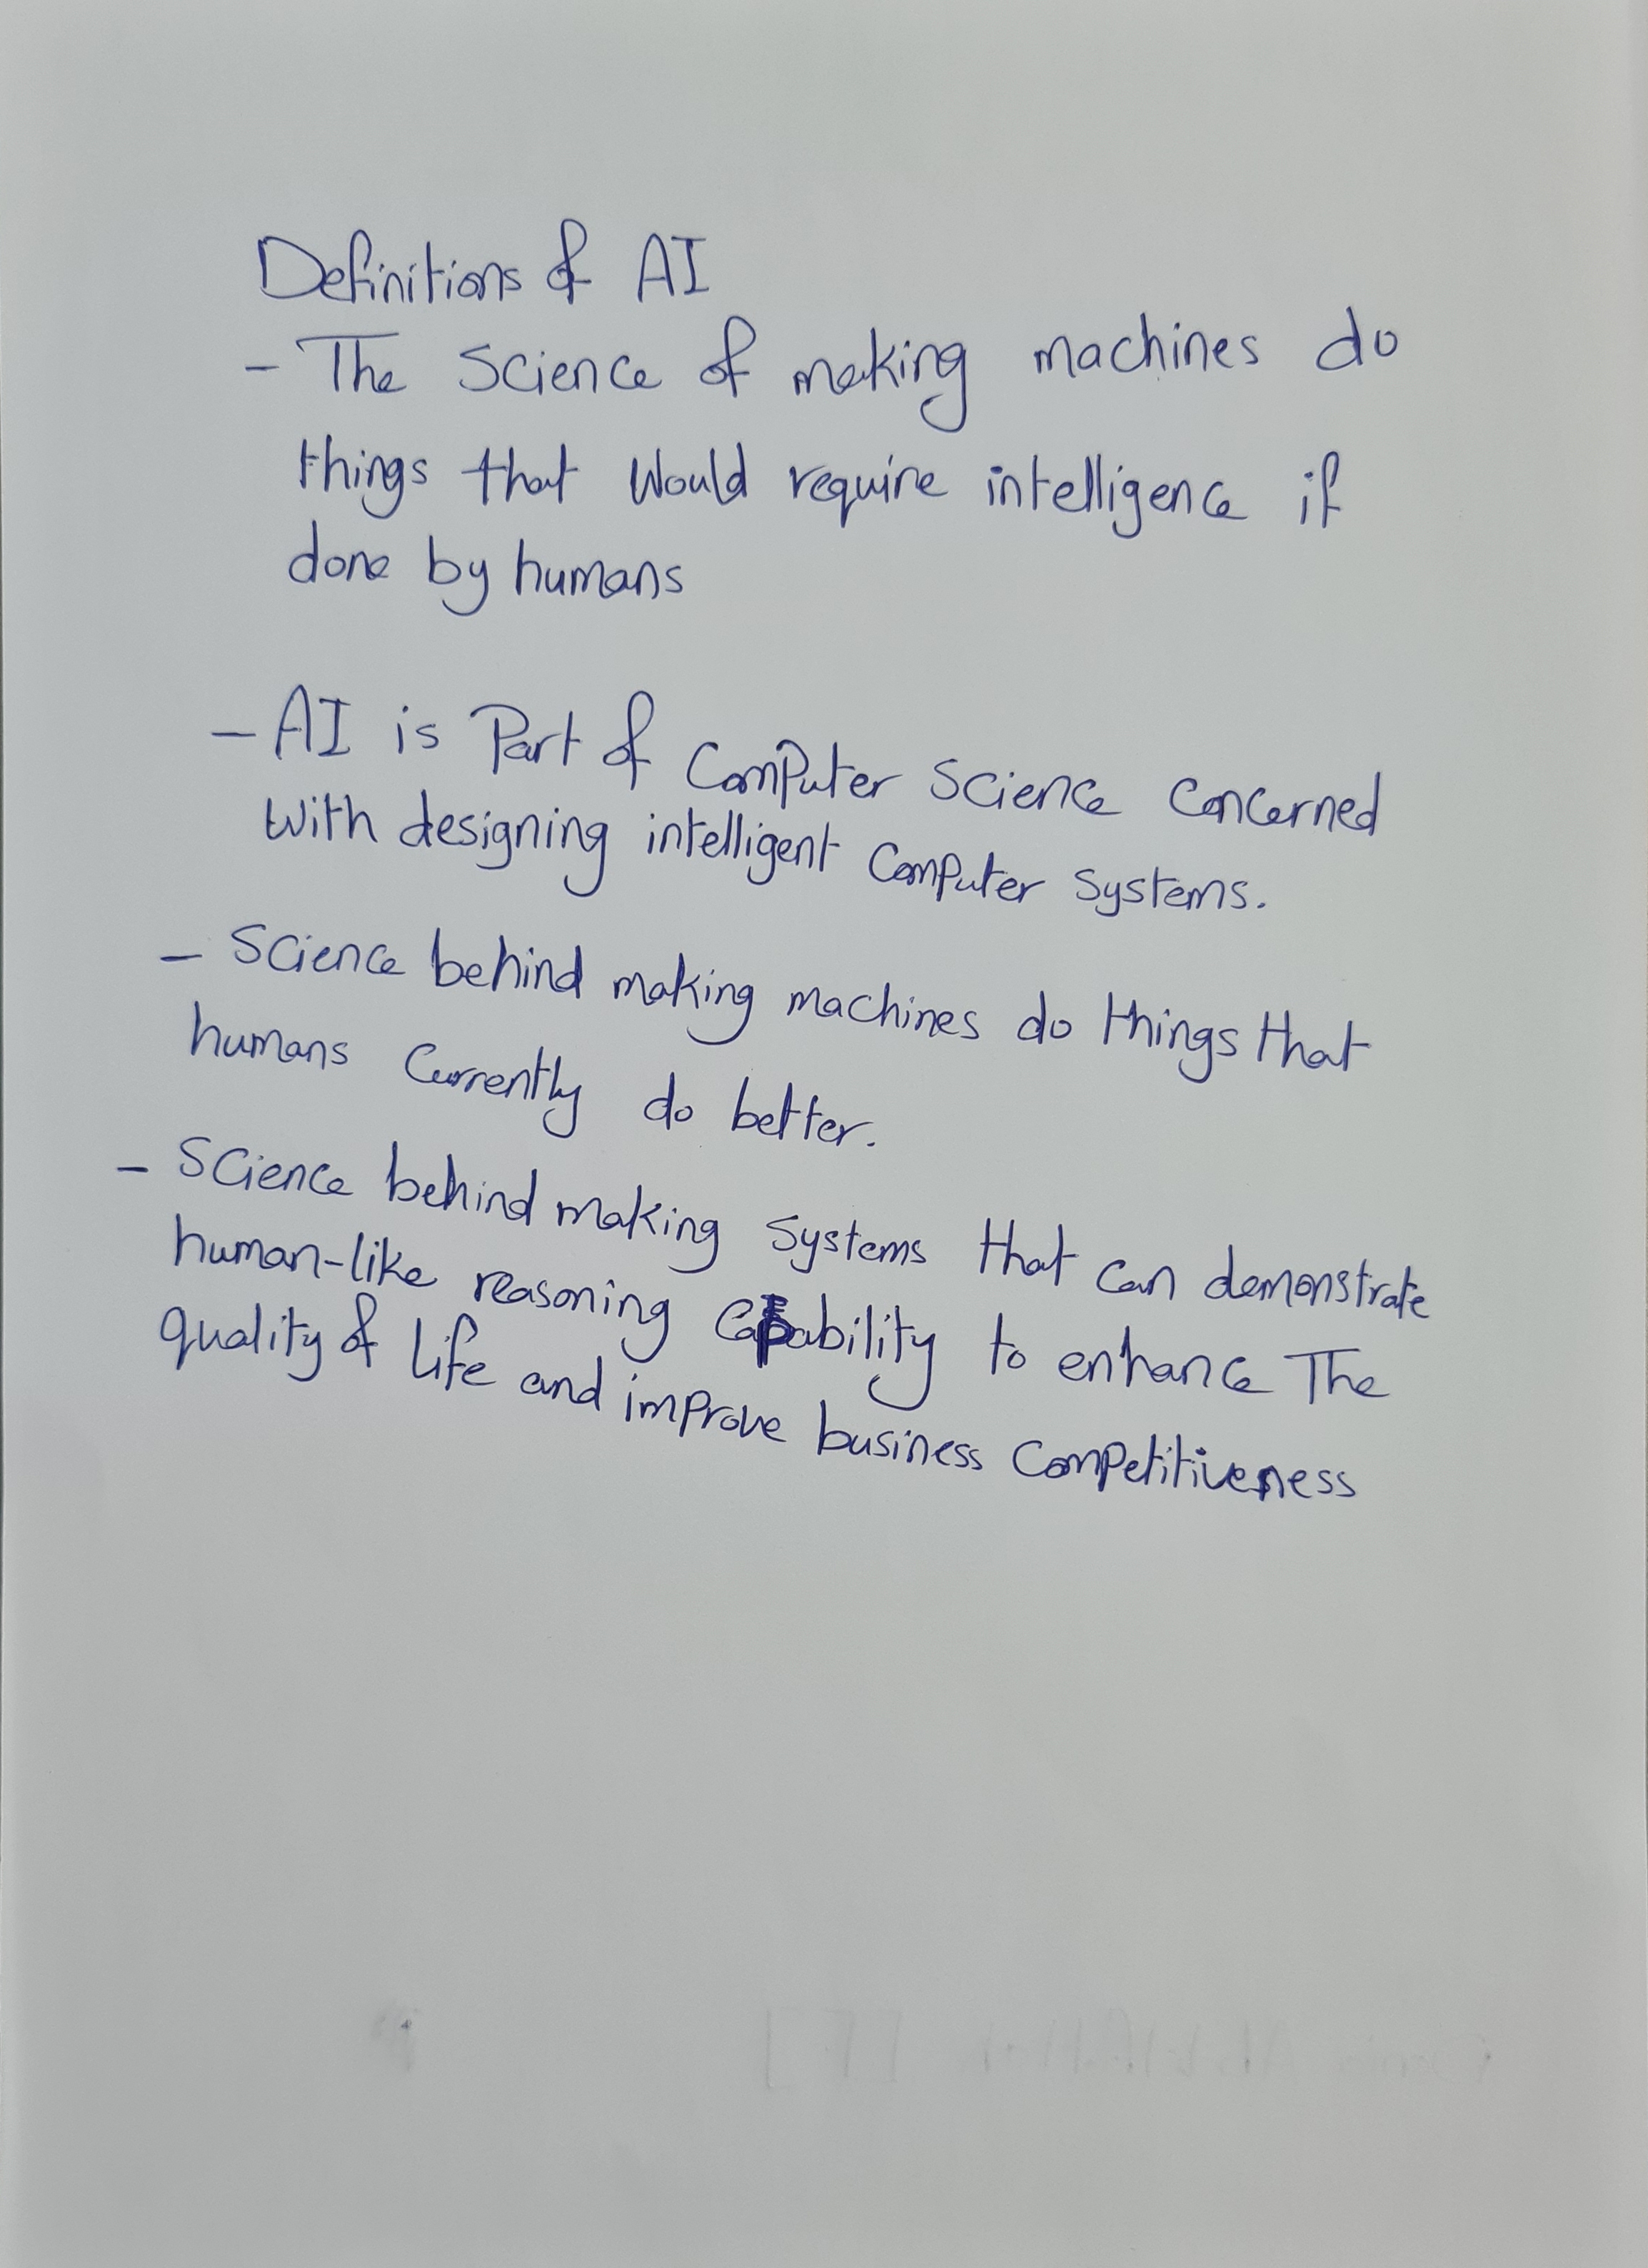 Definitions of AI
- The Science of making machines do
things that would require intelligence if
done by humans
- AI is Part of Computer Science concerned
with designing intelligent Computer Systems.
- Science behind making machines do things that
humans Currently do better.
- Science behind making Systems that can demonstrate
human-like reasoning capability to enhance The
quality of life and improve business Competitiveness